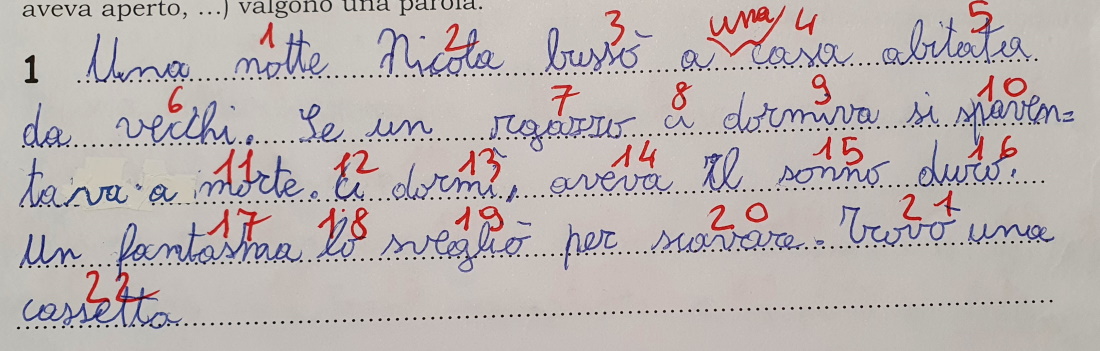 aveva aperto, ...) valgono una parola.
1 2 3 una 4 5
1 Una notte Nicola bussò a casa abitata
6 7 8 9 10
da vecchi. Se un rgazzo ci dormiva si spaven=
11 12 13 14 15 16
tava a morte. Ci dormì, aveva Il sonno duro.
17 18 19 20 21
Un fantasma lo svegliò per scavare. Trovò una
22
cassetta